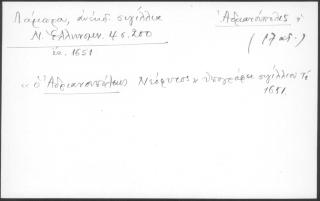 Λάμπρου, ἀνέκδ. σιγίλλια
Ν. Ἑλληνομν. 4 σ. 200
ἔτ. 1651
Ἀδριανούπολις
(17 αἰ.)
ὁ Ἀδριανουπόλεως Νεόφυτος ὑπογράφει σιγίλλιον τῷ
1651.